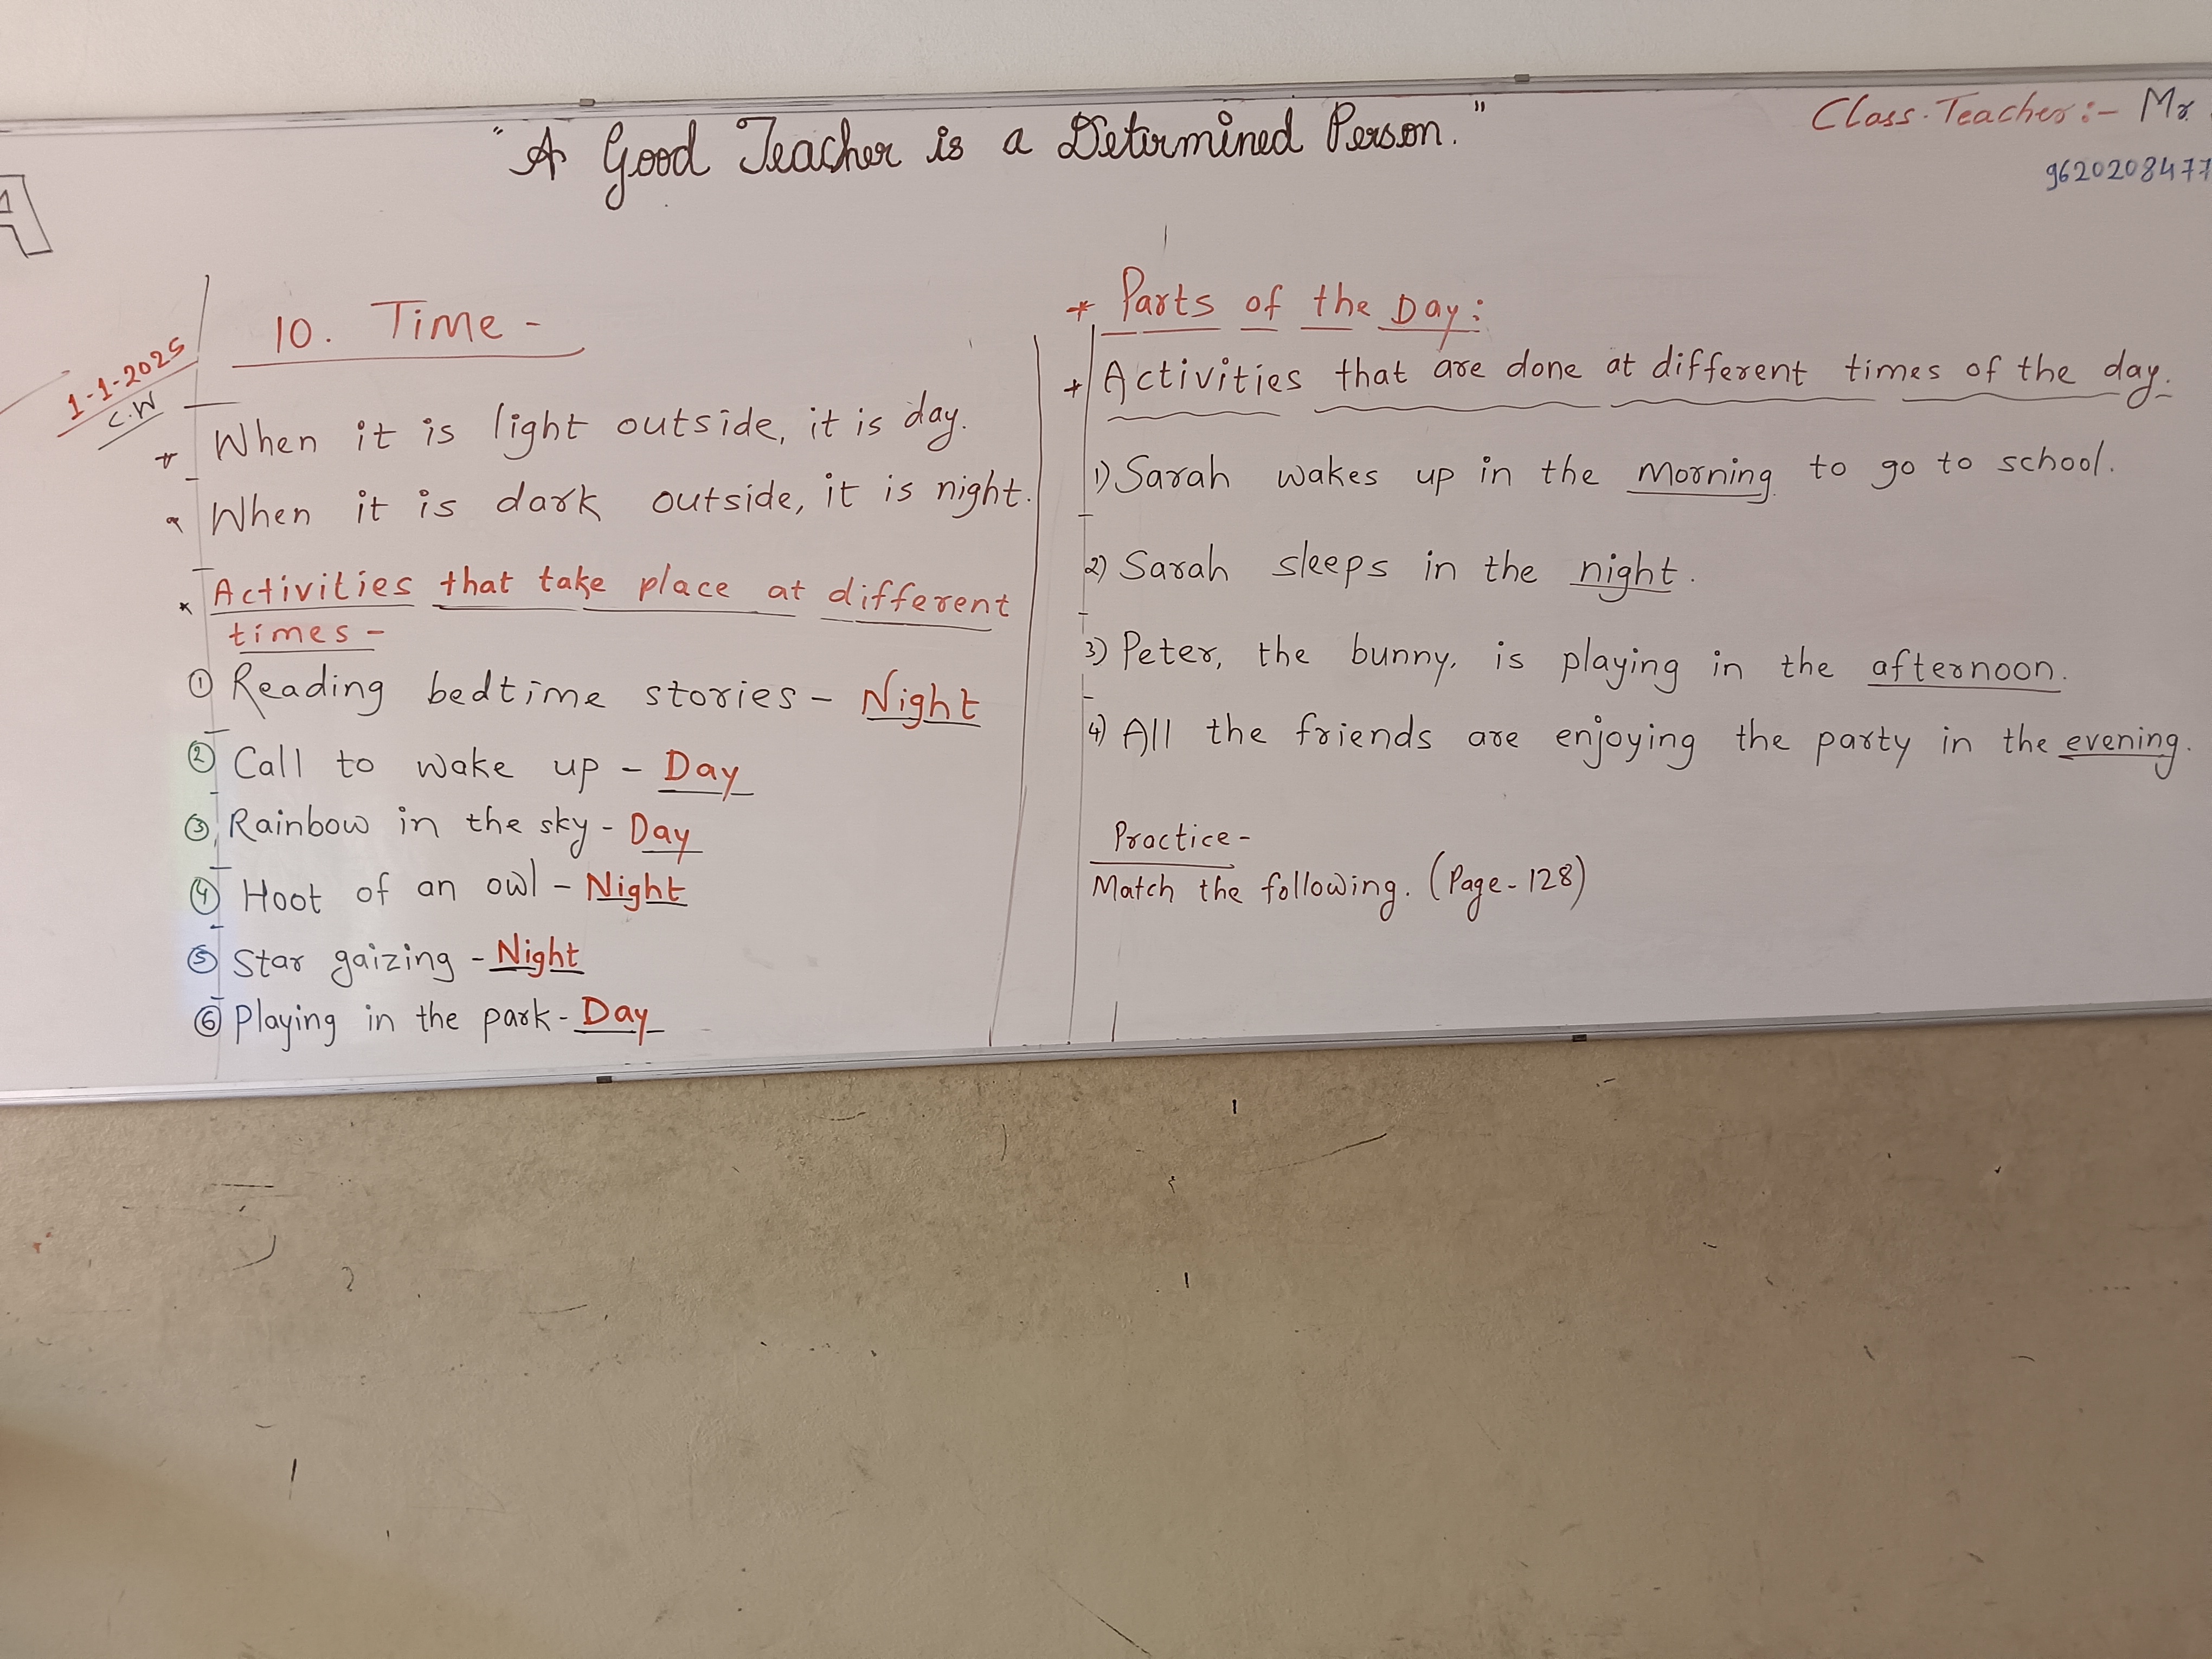 "A Good Teacher is a Determined Person."
Class Teacher:- Mr.
9620208477
A
1-1-2025
C.W
10. Time -
* When it is light outside, it is day.
* When it is dark outside, it is night.
* Activities that take place at different
times -
① Reading bedtime stories - Night
② Call to wake up - Day
③ Rainbow in the sky - Day
④ Hoot of an owl - Night
⑤ Star gaizing - Night
⑥ Playing in the park - Day
* Parts of the Day:
* Activities that are done at different times of the day.
1) Sarah wakes up in the Morning to go to school.
2) Sarah sleeps in the night.
3) Peter, the bunny, is playing in the afternoon.
4) All the friends are enjoying the party in the evening.
Practice -
Match the following. (Page-128)